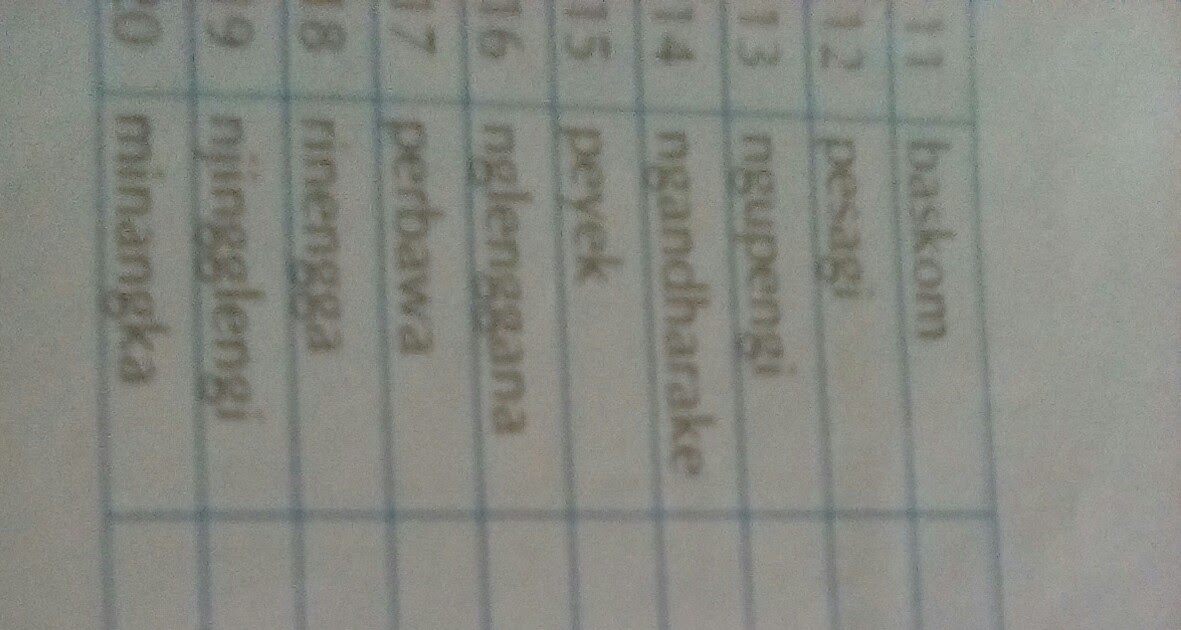 11 baskom
12 pesagi
13 ngupengi
14 ngandharake
15 peyek
16 nglenggana
17 perbawa
18 rinengga
19 njingglengi
20 minangka